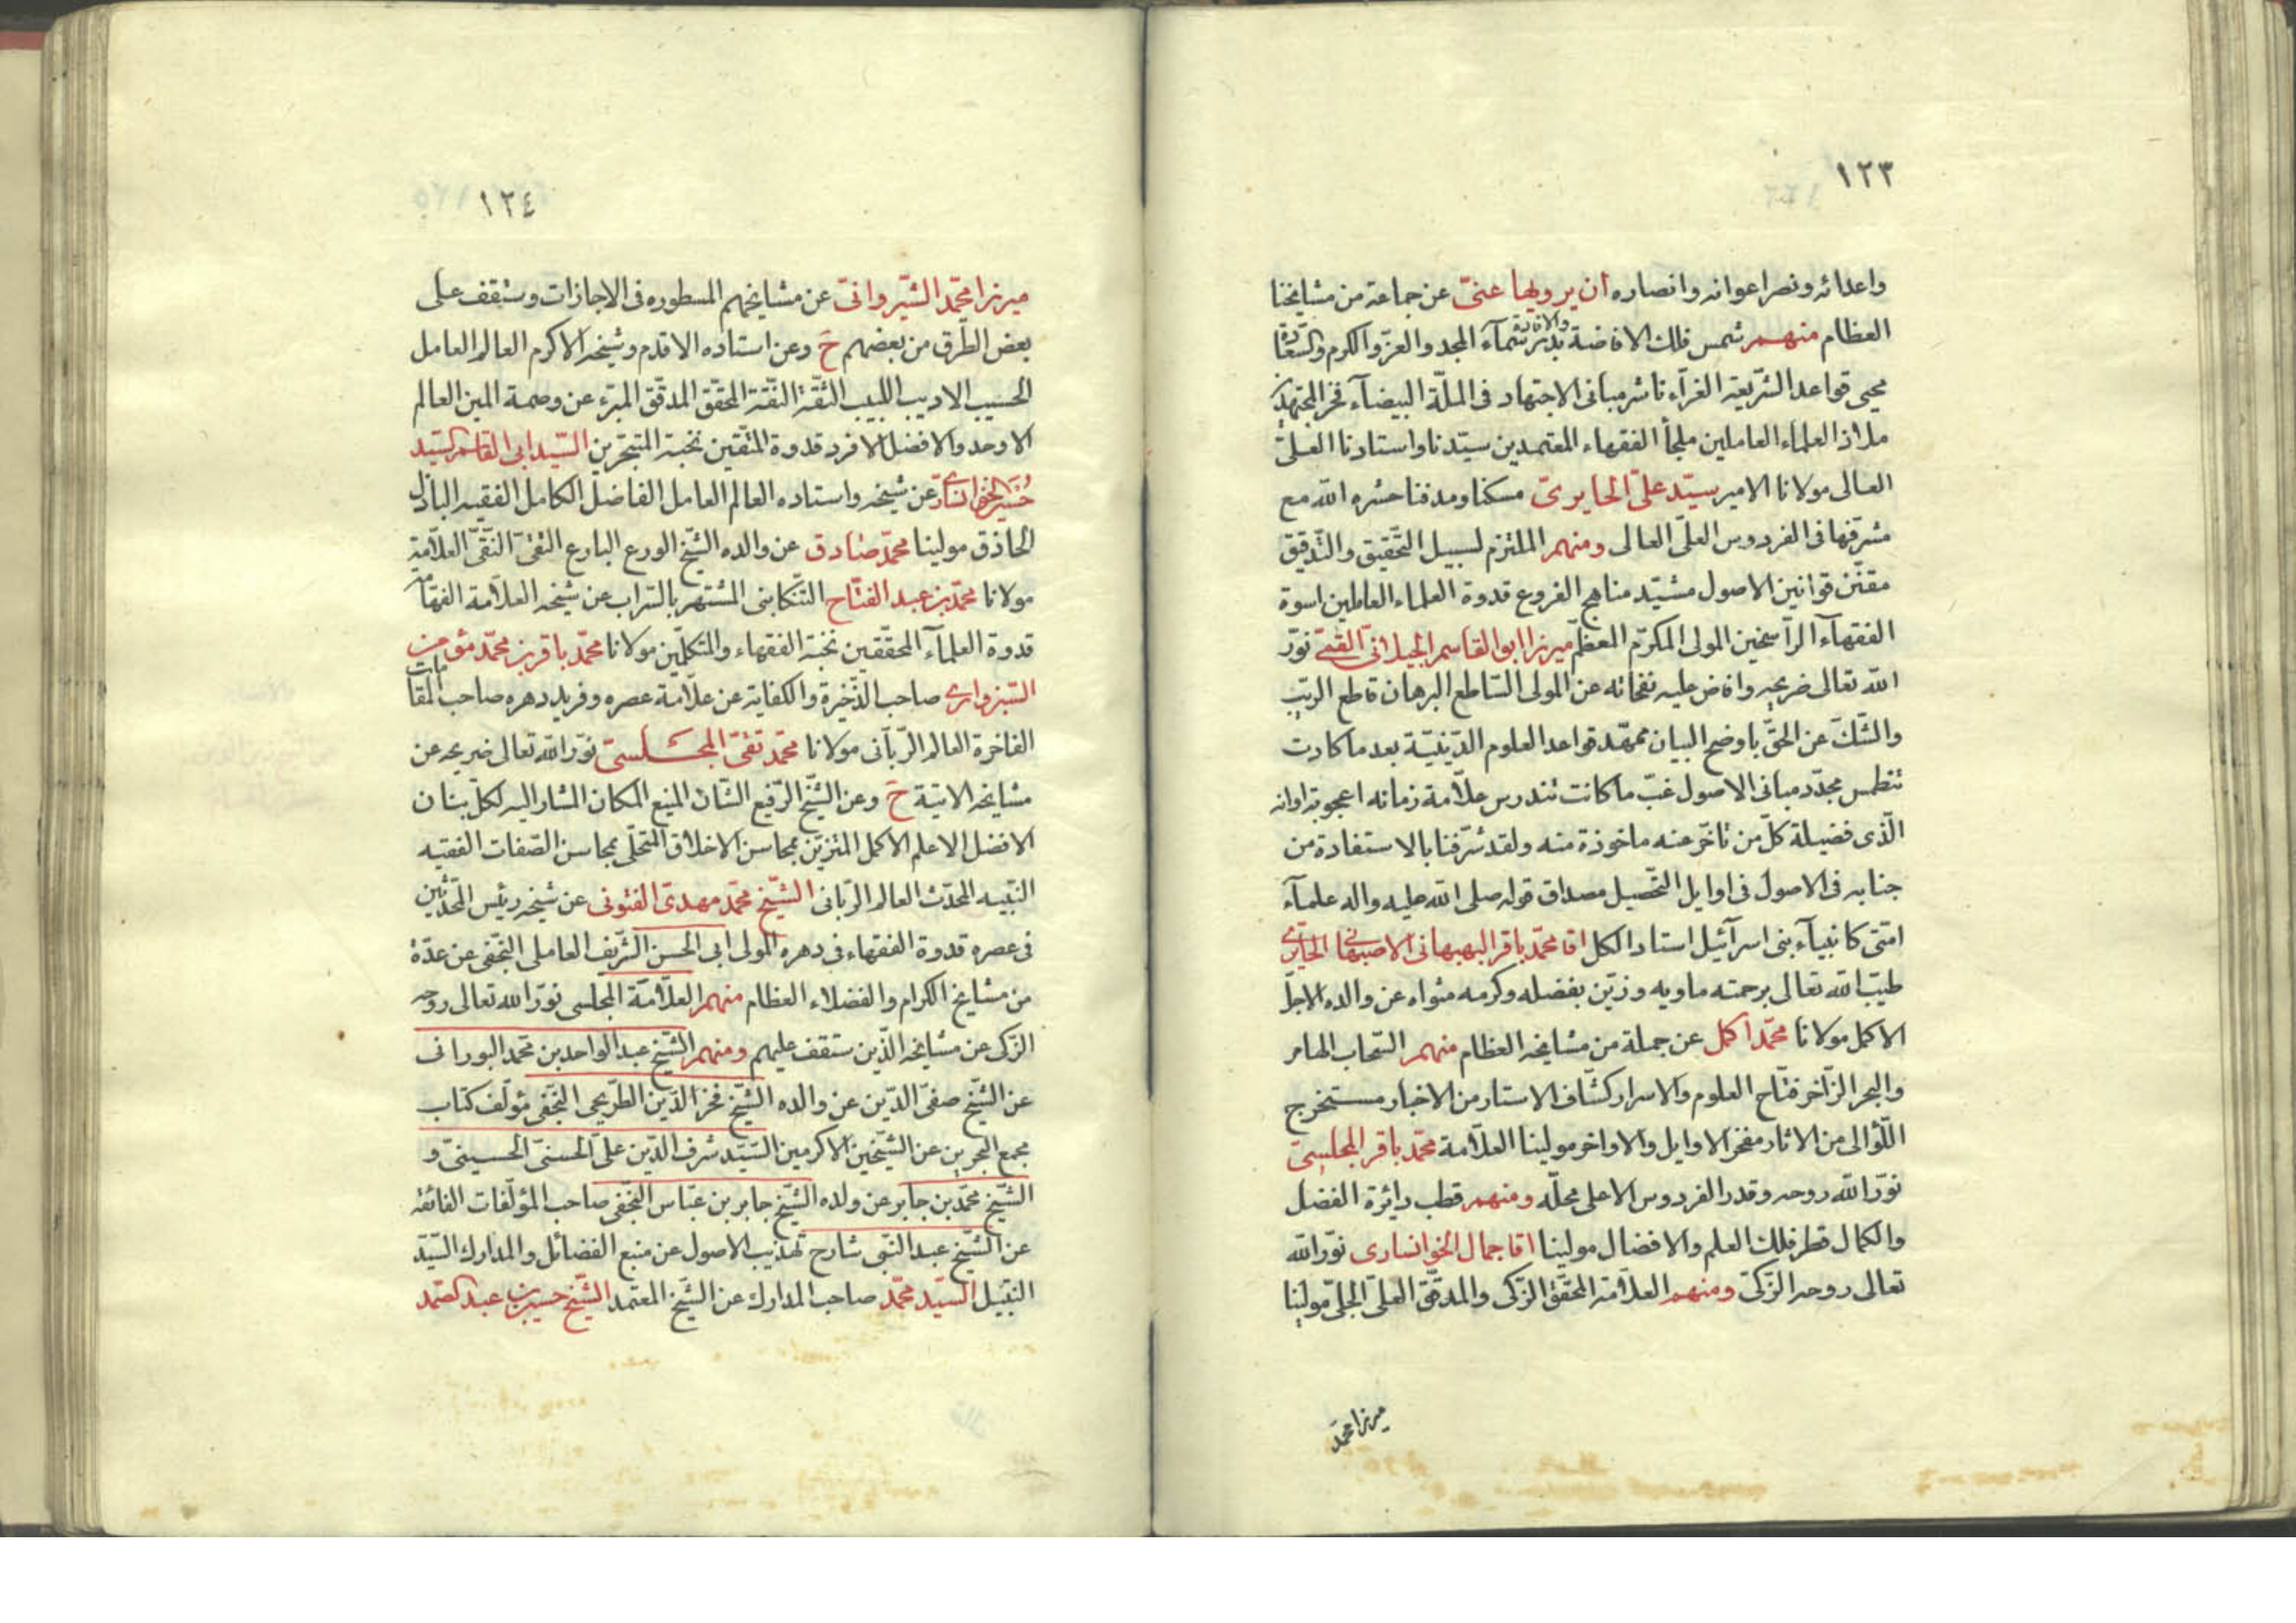 ١٢٣
واعدائه ونصر اعوانه وانصاره ان يرويها عنّى عن جماعة من مشايخنا
العظام منهم شمس فلك الافاضة والافادة بدر سمآء المجد والعزّ والكرم والسّعادة
محيى قواعد الشّريعة الغرّآء ناشر مبانى الاجتهاد فى الملّة البيضآء فخر المجتهدين
ملاذ العلماء العاملين ملجأ الفقهاء المعتمدين سيّدنا واستادنا العلىّ
العالى مولانا الامير سيّد علىّ الحايرىّ مسكنا ومدفنا حشره الله مع
مشرّفها فى الفردوس العلّى العالى ومنهم الملتزم لسبيل التّحقيق والتّدقيق
مقنّن قوانين الاصول مشيّد مناهج الفروع قدوة العلماء العاملين اسوة
الفقهآء الرّاسخين المولى المكرّم المعظّم ميرزا ابو القاسم الجيلانىّ القمّى نوّر
الله تعالى ضريحه وافاض عليه نفحاته عن المولى السّاطع البرهان قاطع الريب
والشّك عن الحقّ باوضح البيان ممهّد قواعد العلوم الدّينيّة بعد ما كادت
تنطمس مجدّد مبانى الاصول غبّ ما كانت تندرس علّامة زمانه اعجوبة اوانه
الّذى فضيلة كلّ من تاخّر عنه ماخوذة منه ولقد شرّفنا بالاستفادة من
جنابه فى الاصول فى اوايل التّحصيل مصداق قوله صلى الله عليه واله علمآء
امّتى كانبيآء بنى اسرآئيل استاد الكل اقا محمّد باقر البهبهانى الاصبهانى الحايرى
طيّب الله تعالى برحمته ماويه وزيّن بفضله وكرمه مثواه عن والده الاجلّ
الاكمل مولانا محمّد اكمل عن جملة من مشايخه العظام منهم السّحاب الهامر
والبحر الزّاخر فتّاح العلوم والاسرار كشّاف الاستار من الاخبار مستخرج
اللّؤالى من الاثار مفخر الاوايل والاواخر مولينا العلّامة محمّد باقر المجلسىّ
نوّر الله روحه وقدر الفردوس الاعلى محلّه ومنهم قطب دايرة الفضل
والكمال قطر فلك العلم والافضال مولينا اقا جمال الخوانسارى نوّر الله
تعالى روحه الزّكىّ ومنهم العلّامة المحقّق الزّكى والمدقّق العلىّ الجلىّ مولينا
ميرزا محمّد
١٢٤
ميرزا محمّد الشّيروانىّ عن مشايخهم المسطوره فى الاجازات وستقف على
بعض الطّرق من بعضهم ح وعن استاده الاقدم وشيخه الاكرم العالم العامل
الحسيب الاديب اللبيب الثّقة النّقة المحقّق المدقّق المبرّء عن وصمة المين العالم
الاوحد والافضل الافرد قدوة المتّقين نخبة المتبحّرين السّيد ابى القاسم السّيد
حسين الخوانسارى عن شيخه واستاده العالم العامل الفاضل الكامل الفقيه الباذل
الحاذق مولينا محمّد صادق عن والده الشّيخ الورع البارع التّقىّ النّقىّ العلّامة
مولانا محمّد بن عبد الفتّاح التّنكابنى المشتهر بالسّراب عن شيخه العلّامة الفهّامة
قدوة العلمآء المحقّقين نخبة الفقهاء والمتكلّمين مولانا محمّد باقر بن محمّد مؤمن
السّبزوارى صاحب الذّخيرة والكفاية عن علّامة عصره وفريد دهره صاحب المقامات
الفاخرة العالم الرّبانى مولانا محمّد تقىّ المجلسىّ نوّر الله تعالى ضريحه عن
مشايخه الاتية ح وعن الشّيخ الرّفيع الشّان المنيع المكان المشار اليه لكلّ بنان
الافضل الاعلم الاكمل المتزيّن بمحاسن الاخلاق المتحلّى بمحاسن الصّفات الفقيه
النّبيه المحدّث العالم الرّبانى الشّيخ محمّد مهدىّ الفتونى عن شيخه رئيس المحدّثين
فى عصره قدوة الفقهاء فى دهره المولى ابى الحسن الشّريف العاملى النّجفى عن عدّة
من مشايخ الكرام والفضلاء العظام منهم العلّامة المجلسى نوّر الله تعالى روحه
الزّكى عن مشايخه الّذين ستقف عليهم ومنهم الشّيخ عبد الواحد بن محمّد البورانى
عن الشّيخ صفىّ الدّين عن والده الشّيخ فخر الدّين الطّريحى النّجفى مؤلّف كتاب
مجمع البحرين عن الشّيخين الاكرمين السّيّد شرف الدّين علىّ الحسنىّ الحسينىّ و
الشّيخ محمّد بن جابر عن ولده الشّيخ جابر بن عبّاس النّجفى صاحب المؤلّفات الفائقة
عن الشّيخ عبد النّبى شارح تهذيب الاصول عن منبع الفضائل والمدارك السّيّد
النّبيل السّيّد محمّد صاحب المدارك عن الشّيخ المعتمد الشّيخ حسين بن عبد الصّمد